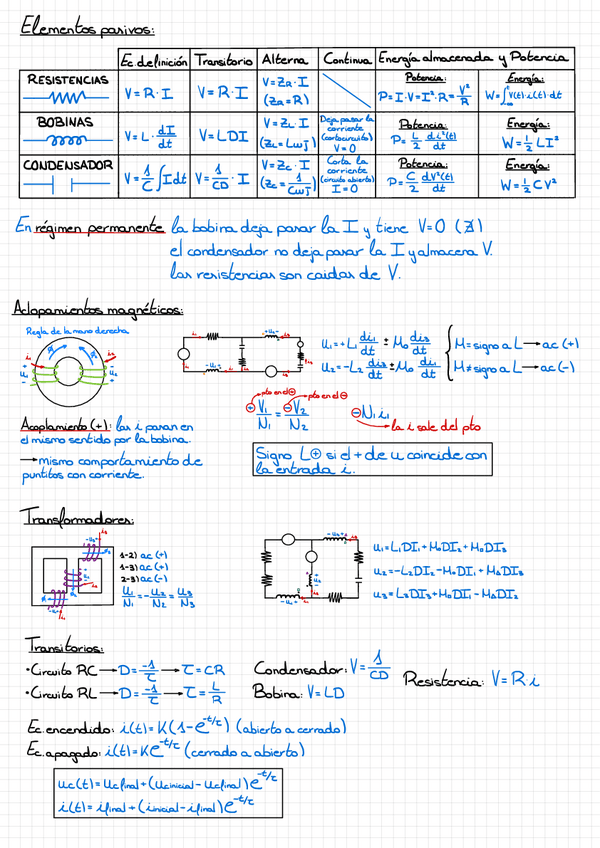 Elementos pasivos:
Ec. definición Transitorio Alterna Continua Energía almacenada y Potencia
RESISTENCIAS V=R·I V=R·I V=Z_R·I (Z_R=R) Potencia: P=I·V=I²·R=V²/R Energía: W=∫v(t)·i(t)·dt
BOBINAS V=L·dI/dt V=LDI V=Z_L·I (Z_L=LωJ) Deja pasar la corriente (cortocircuito) V=0 Potencia: P=L/2 di²(t)/dt Energía: W=1/2 LI²
CONDENSADOR V=1/C ∫Idt V=1/CD·I V=Z_C·I (Z_C=1/CωJ) Corta la corriente (circuito abierto) I=0 Potencia: P=C/2 dV²(t)/dt Energía: W=1/2 CV²
En régimen permanente la bobina deja pasar la I y tiene V=0 (∄)
el condensador no deja pasar la I y almacena V.
las resistencias son caidas de V.
Aclopamientos magnéticos:
Regla de la mano derecha
u₁=+L di₁/dt ± M₀ di₃/dt
u₂=-L₂ di₃/dt ± M₀ di₁/dt
M=signo a L→ac (+)
M≠signo a L→ac (-)
pto en el ⊕ pto en el ⊖
⊕V₁/N₁ = ⊖V₂/N₂ ⊖N₁i₁
→la i sale del pto
Acoplamiento (+): las i pasan en
el mismo sentido por la bobina.
→mismo comportamiento de
puntitos con corriente.
Signo L⊕ si el + de u coincide con
la entrada i.
Transformadores:
1-2) ac (+)
1-3) ac (+)
2-3) ac (-)
U₁/N₁ = -U₂/N₂ = U₃/N₃
u₁=L₁DI₁+M₀DI₂+M₀DI₃
u₂=-L₂DI₂-M₀DI₁+M₀DI₃
u₃=L₃DI₃+M₀DI₁-M₀DI₂
Transitorios:
·Circuito RC→D=-1/τ→τ=CR
·Circuito RL→D=-1/τ→τ=L/R
Condensador: V=1/CD
Bobina: V=LD
Resistencia: V=R i
Ec. encendido: i(t)=K(1-e^-t/τ) (abierto a cerrado)
Ec. apagado: i(t)=Ke^-t/τ (cerrado a abierto)
uc(t)=Ucfinal+(ucinicial-ucfinal)e^-t/τ
i(t)=ifinal+(iinicial-ifinal)e^-t/τ